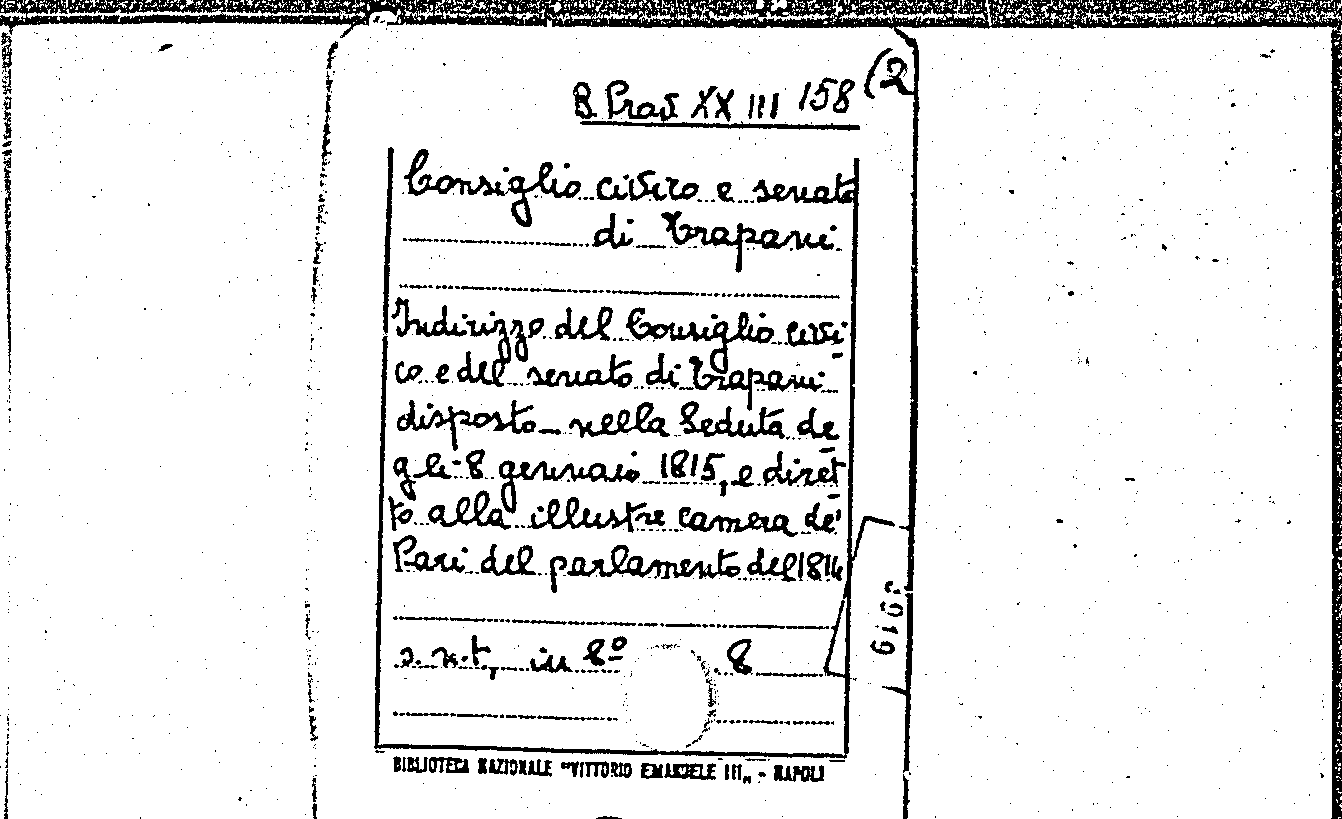 B. Prov XXIII 158 (2
Consiglio civico e senato
di Trapani
Indirizzo del Consiglio civi-
co e del senato di Trapani
disposto nella Seduta de-
gli 8 gennaio 1815, e diret-
to alla illustre camera de'
Pari del parlamento del 1814
s.n.t, in 8º 8
BIBLIOTECA NAZIONALE "VITTORIO EMANUELE III„ - NAPOLI